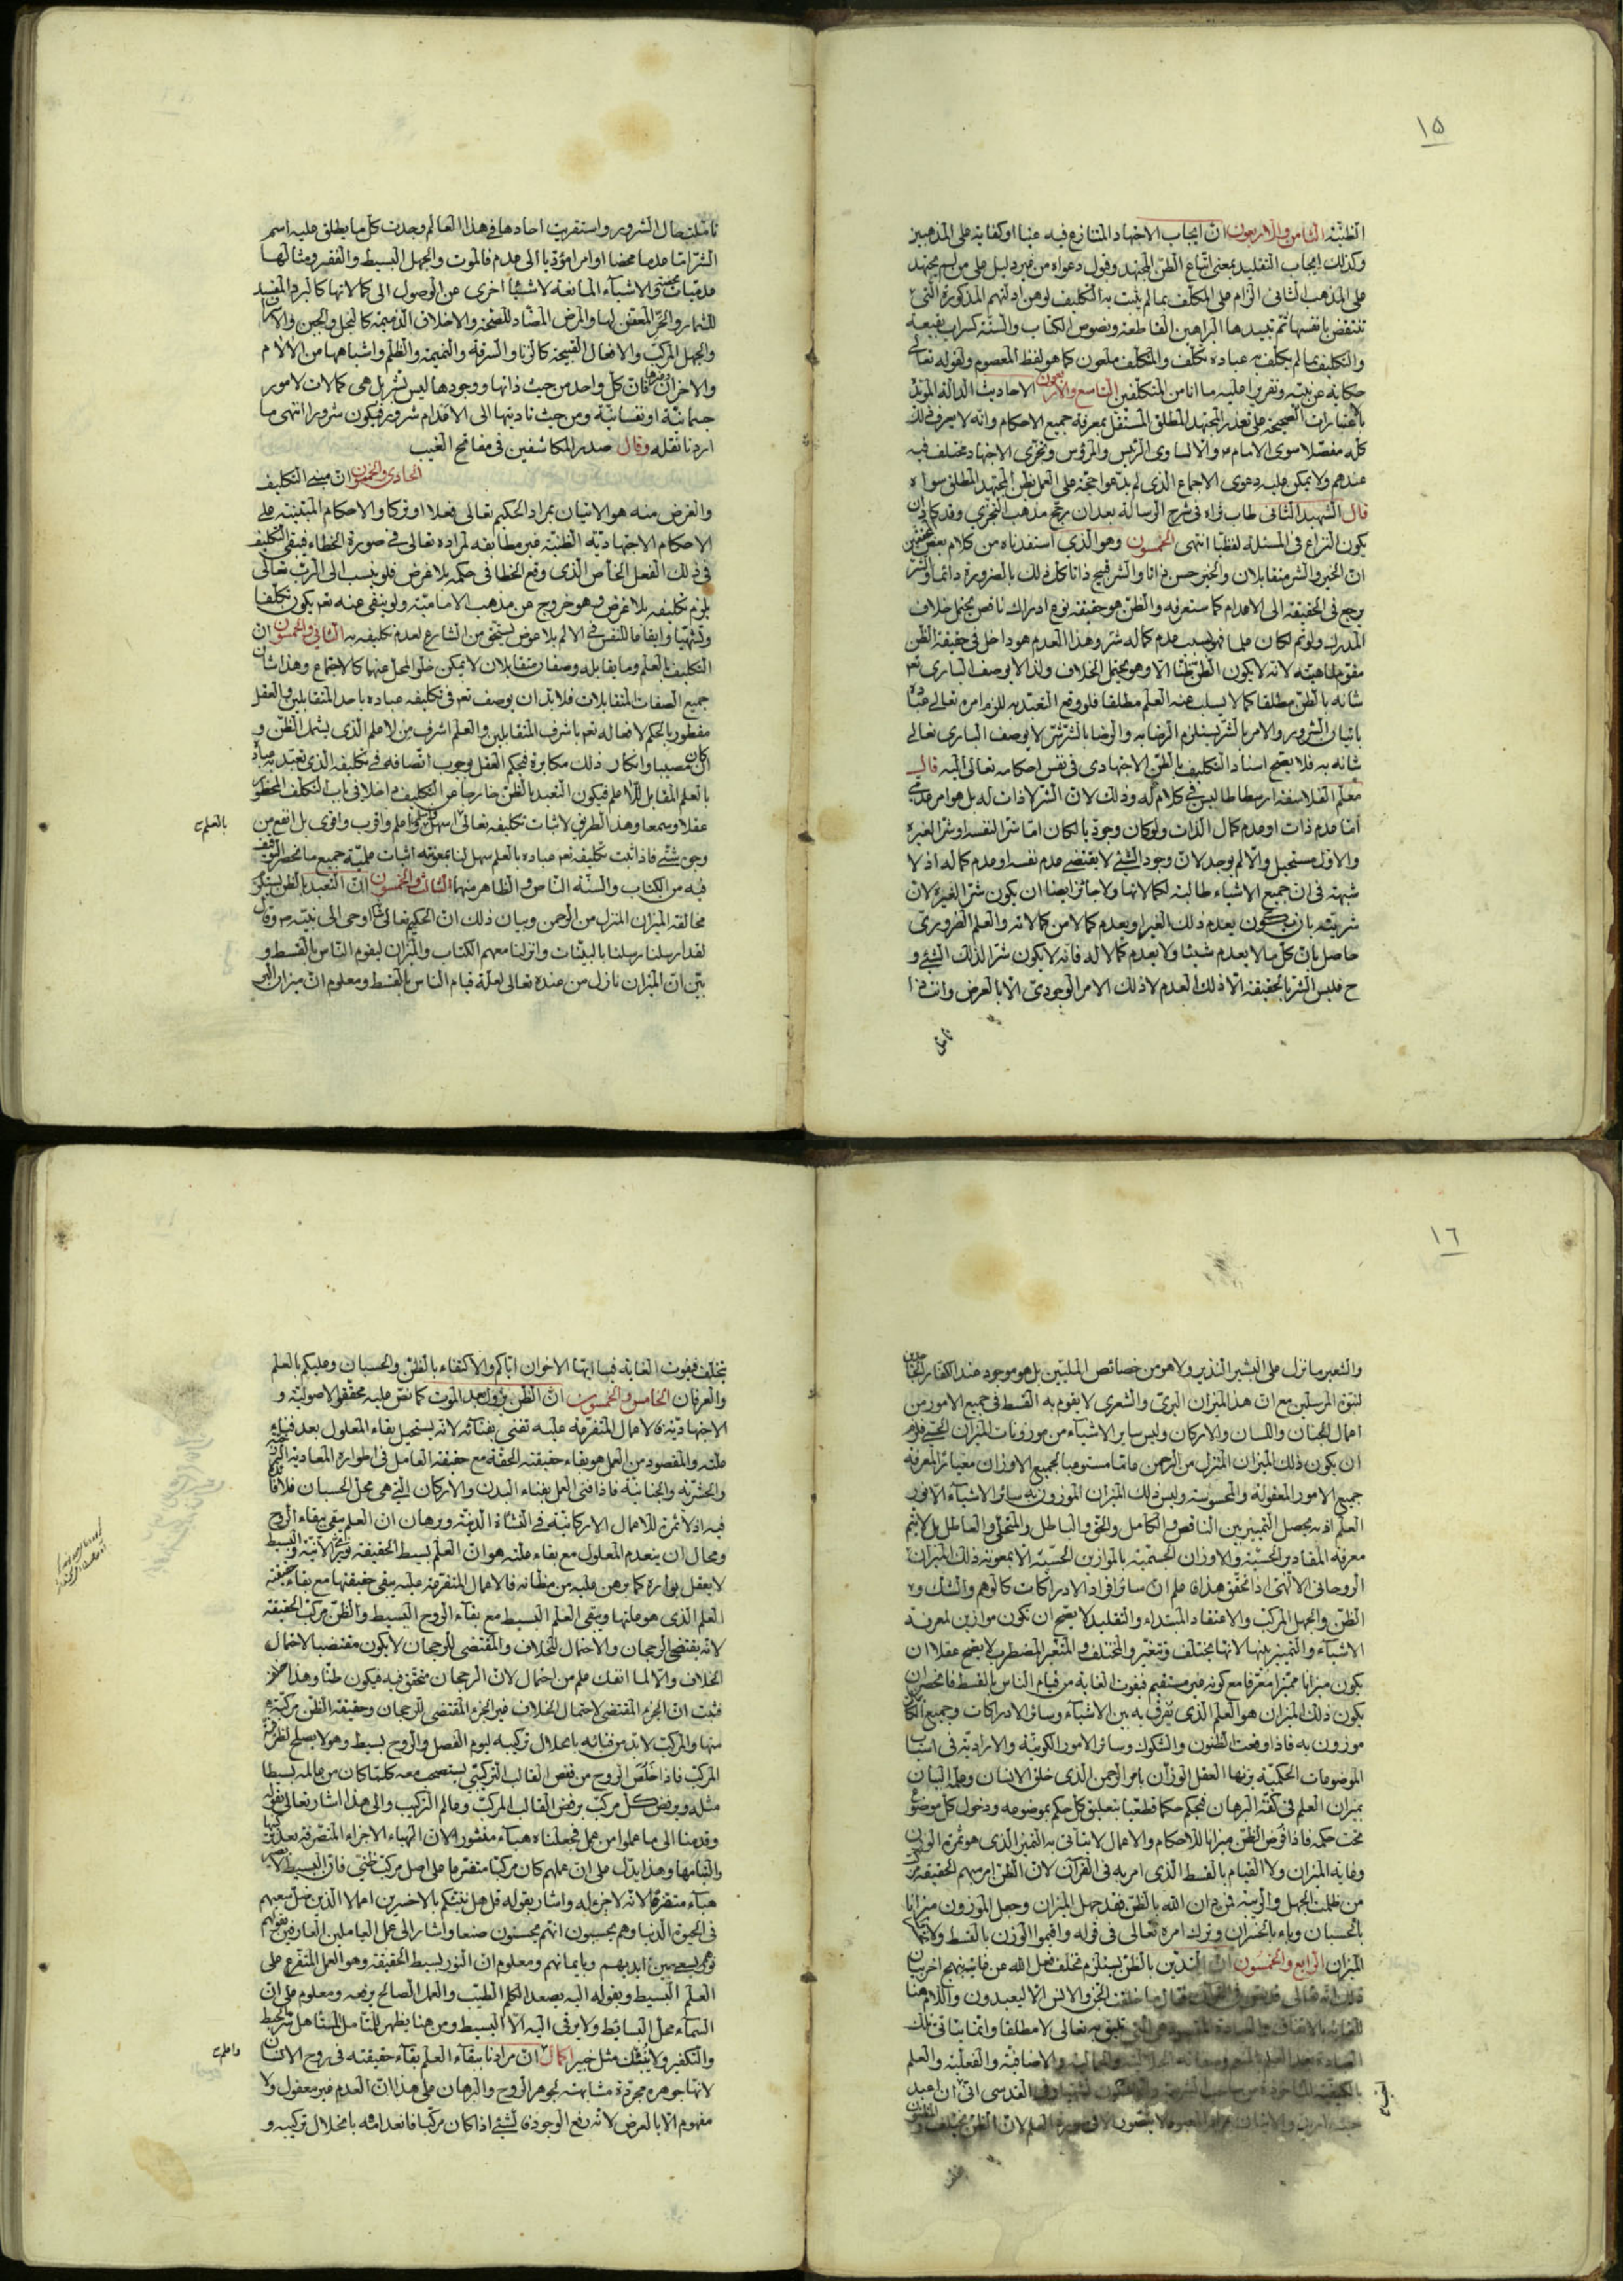 ١٥
الظنية الثامن والاربعون ان ايجاب الاجتهاد المتنازع فيه عينا او كفاية على المذهبين
وكذلك ايجاب التقليد بمعنى اتباع الظن المجتهد وقبول دعواه من غير دليل على من لم يجتهد
على المذهب الثانى الزام على المكلف بما لم يثبت به التكليف لوهن ادلتهم المذكورة التى
تنتقض بانفسها ثم تبيدها البراهين القاطعة ونصوص الكتاب والسنة كسراب بقيعة
والتكليف بما لم يكلف به عباده تكلف والمتكلف ملعون كما هو لفظ المعصوم ولقوله تعالى
حكاية عن نبيه وتقريرا عليه ما انا من المتكلفين التاسع والاربعون الاحاديث الدالة المؤيدة
بالاعتبارات الصحيحة على تعذر المجتهد المطلق المستقل بمعرفة جميع الاحكام وانه لا يعرف ذلك
كله مفصلا سوى الامام والا لساوى الرئيس والمرؤس وتجزى الاجتهاد مختلف فيه
عندهم ولا يمكن عليه دعوى الاجماع الذى لم يدعوا حجة على العمل بظن المجتهد المطلق سواه
قال الشهيد الثانى طاب ثراه فى شرح الرسالة بعد ان رجح مذهب التجزى وقد كاد ان
يكون النزاع فى المسئلة لفظيا انتهى الخمسون وهو الذى استفدناه من كلام بعض المحققين
ان الخير والشر متقابلان والخير حسن ذاتا والشر قبيح ذاتا كل ذلك بالضرورة دائما والشر
يرجع فى الحقيقة الى الاعدام كما ستعرفه والظن هو حقيقة نوع ادراك ناقص يحتمل خلاف
المدرك ولو تم لكان علما فهو بسبب عدم كماله شر وهذا العدم هو داخل فى حقيقة الظن
مقوم لماهيته لانه لا يكون الظن ظنا الا وهو يحتمل الخلاف ولذا لا يوصف البارى تعالى
شانه بالظن مطلقا كما لا يسلب عنه العلم مطلقا فلو وقع التعبد به للزم امره تعالى عباده
باتيان الشرور والامر بالشر يستلزم الرضا به والرضا بالشر شر لا يوصف البارى تعالى
شانه به فلا يصح اسناد التكليف بالظن الاجتهادى فى نفس احكامه تعالى اليه قال
معلم الفلاسفة ارسطاطاليس فى كلام له وذلك لان الشر لا ذات له بل هو امر عدمى
اما عدم ذات او عدم كمال الذات ولو كان وجوديا لكان اما شرا لنفسه او شرا لغيره
والاول مستحيل والا لم يوجد لان وجود الشئ لا يقتضى عدم نفسه او عدم كماله اذ لا
شبهة فى ان جميع الاشياء طالبة لكمالاتها ولا جائز ايضا ان يكون شرا لغيره لان
شريته بان يكون يعدم ذلك الغير او يعدم كمالا من كمالاته والعلم الضرورى
حاصل بان كل ما لا يعدم شيئا ولا يعدم كمالا له فانه لا يكون شرا لذلك الشئ و
ح فليس الشر بالحقيقة الا ذلك العدم لا ذلك الامر الوجودى الا بالعرض وانت اذا
تاملت
تاملت حال الشرور واستقريت احادها فى هذا العالم وجدت كل ما يطلق عليه اسم
الشر اما عدما محضا او امرا مؤديا الى عدم فالموت والجهل البسيط والفقر ومثالها
عدميات محضة والاشياء المانعة لاشياء اخرى عن الوصول الى كمالاتها كالبرد المفسد
للثمار والحر المعفن لها والمرض المضاد للصحة والاخلاق الذميمة كالبخل والجبن والاسراف
والجهل المركب والافعال القبيحة كالزنا والسرقة والنميمة والظلم واشباهها من الآلام
والاحزان وغيرها فان كل واحد من حيث ذاتها ووجودها ليس بشر بل هى كمالات لامور
جسمانية او نفسانية ومن حيث تاديتها الى الاعدام شرور فيكون شرورا انتهى ما
اردنا نقله وقال صدر المكاشفين فى مفاتح الغيب
الحادى والخمسون ان مبنى التكليف
والغرض منه هو الاتيان بمراد الحكيم تعالى فعلا او تركا والاحكام المبتنية على
الاحكام الاجتهادية الظنية غير مطابقة لمراده تعالى فى صورة الخطاء فيبقى التكليف
فى ذلك الفعل الخاص الذى وقع الخطا فى حكمه بلا غرض فلو ينسب الى الرب تعالى
يلزم تكليفه بلا غرض وهو خروج عن مذهب الامامية ولو ينفى عنه تعالى يكون تكلفا
وتشهيا وايقاعا للنفس فى الالم بلا عوض يستحق من الشارع لعدم تكليفه به الثانى والخمسون ان
التكليف بالعلم وما يقابله وصفان متقابلان لا يمكن خلو المحل عنهما كالاجتماع وهذا شان
جميع الصفات المتقابلات فلا بد ان يوصف تعالى فى تكليفه عباده باحد المتقابلين والعقل
مفطور بالحكم لافعاله تعالى باشرف المتقابلين والعلم اشرف من لا علم الذى يشمل الظن و
ان كان مصيبا وانكار ذلك مكابرة فيحكم العقل بوجوب اتصافه فى تكليفه الذى تعبد به عباده
بالعلم المقابل للا علم فيكون التعبد بالظن خارجا عن التكليف داخلا فى باب التكلف المحظور
عقلا وسمعا وهذا الطريق لاثبات تكليفه تعالى بالعلم اسهل واسلم واعلم واقرب واقوى بل انفع من
وجوه شتى فاذا ثبت تكليفه تعالى عباده بالعلم سهل لنا بمعونته اثبات علمية جميع ما انحصر التوقف
فيه من الكتاب والسنة الناص والظاهر منهما الثالث والخمسون ان التعبد بالظن يستلزم
مخالفة الميزان المنزل من الرحمن وبيان ذلك ان الحكيم تعالى اوحى الى نبيه وقال
لقد ارسلنا رسلنا بالبينات وانزلنا معهم الكتاب والميزان ليقوم الناس بالقسط و
بين ان الميزان نازل من عنده تعالى لعلة قيام الناس بالقسط ومعلوم ان ميزان البر
١٦
والشعير ما نزل على البشير النذير ولا هو من خصائص المليين بل هو موجود عند الكفار الجاحدين
لنبوة المرسلين مع ان هذا الميزان البرى والشعرى لا يقوم به القسط فى جميع الامور من
اعمال الجنان واللسان والاركان وليس ساير الاشياء من موزونات الميزان الحسى فلزم
ان يكون ذلك الميزان المنزل من الرحمن عاما مستوعبا لجميع الاوزان معيارا لمعرفة
جميع الامور المعقولة والمحسوسة وليس ذلك الميزان الموزون به سائر الاشياء الا نور
العلم اذ به يحصل التمييز بين الناقص والكامل والحق والباطل والمتحلى والعاطل بل لا يتم
معرفة المقادير الحسية والاوزان الجسمية بالموازين الحسية الا بمعونة ذلك الميزان
الروحانى الالهى اذا تحقق هذا فاعلم ان سائر افراد الادراكات كالوهم والشك و
الظن والجهل المركب والاعتقاد المبتداء والتقليد لا يصح ان تكون موازين لمعرفة
الاشياء والتمييز بينها لانها يختلف وتتغير والمختلف والمتغير المضطرب لا يصح عقلا ان
يكون ميزانا مميزا معرفا مع كونه غير مستقيم فيفوت الغاية من قيام الناس بالقسط فانحصر ان
يكون ذلك الميزان هو العلم الذى يفرق به بين الاشياء وسائر الادراكات وجميع
موزون به فاذا وقعت الظنون والشكوك وسائر الامور الكونية والارادية فى اسباب
الموضوعات الحكمية يزنها العقل الوزان بامر الرحمن الذى خلق الانسان وعلمه البيان
بميزان العلم فى كفة البرهان فيحكم حكما قطعيا بتعليق كل حكم بموضوعه ودخول كل موضوع
تحت حكمه فاذا فرض الظن ميزانا للاحكام والاعمال لا يتاتى به التميز الذى هو ثمرة الوزن
وغاية الميزان ولا القيام بالقسط الذى امر به فى القرآن لان الظن امر مبهم الحقيقة مركب
من ظلمة الجهل والريبة فمن دان الله بالظن فقد جهل الميزان وجعل الموزون ميزانا
بالحسبان وباء بالخسران وترك امره تعالى فى قوله واقيموا الوزن بالقسط ولا تخسروا
الميزان الرابع والخمسون ان التدين بالظن يستلزم تخلف فعل الله عن غايته بنهج اخر بيان
ذلك انه تعالى قال ما خلقت الجن والانس الا ليعبدون واللام هنا
للغاية بالاتفاق والعبادة تليق به تعالى لا مطلقا وانما يتاتى تلك
العبادة بعد العلم والاضافية والفعلية والعلم
بالكيفية الماخوذة من صاحب الشريعة القدسى انى ان اعبد
لا يكون الا فى صورة العلم لان الظن يختلف و
يتخلف فيفوت الغاية فيا ايها الاخوان اياكم والاكتفاء بالظن والحسبان وعليكم بالعلم
والعرفان الخامس والخمسون ان الظن يزول بعد الموت كما نص عليه محققوا الاصولية و
الاجتهادية فالاعمال المتفرعة عليه تفنى بفنائه لانه يستحيل بقاء المعلول بعد فناء
علته والمقصود من العمل هو بقاء حقيقته الحقة مع حقيقة العامل فى اطواره المعادية البرزخية
والحشرية والجنانية فاذا فنى العمل بفناء البدن والاركان التى هى محل الحسبان فلا فائدة
فيه اذ لا ثمرة للاعمال الاركانية فى النشاة الدنية وبرهان ان العلم يبقى ببقاء الروح
ومحال ان ينعدم المعلول مع بقاء علته هو ان العلم بسيط الحقيقة نورى الانية والبسيط
لا يعقل بواره كما برهن عليه من مظانه فالاعمال المتفرعة عليه يبقى حقيقتها مع بقاء حقيقة
العلم الذى هو علتها ويبقى العلم البسيط مع بقاء الروح البسيط والظن مركب الحقيقة
لانه يقتضى الرجحان والاحتمال للخلاف والمقتضى للرجحان لا يكون مقتضيا لاحتمال
الخلاف والا لما انفك علم من احتمال لان الرجحان متحقق فيه فيكون ظنا وهذا خلاف
فثبت ان الجزء المقتضى لاحتمال الخلاف غير الجزء المقتضى للرجحان وحقيقة الظن مركبة
منها والمركب لا بد من فنائه بانحلال تركيبه ليوم الفصل والروح بسيط وهو لا يصلح لظرفية
المركب فاذا خلص الروح من قفص القالب التركيبى يستصحب معه كلما كان من عالمه بسيطا
مثله ويرفض كل مركب برفض القالب المركب وعالم التركيب والى هذا اشار تعالى بقوله
وقدمنا الى ما عملوا من عمل فجعلناه هباء منثورا لان الهباء الاجزاء المتصرفة بعد تركيبها
والتيامها وهذا يدل على ان عملهم كان مركبا متفرعا على اصل مركب ظنى فان البسيط لا يصير
هباء متفرقا لانه لا جزء له واشار بقوله قل هل ننبئكم بالاخسرين اعمالا الذين ضل سعيهم
فى الحيوة الدنيا وهم يحسبون انهم يحسنون صنعا واشار الى عمل العاملين العارفين بقوله
نورهم يسعى بين ايديهم وبايمانهم ومعلوم ان النور بسيط الحقيقة وهو العمل المتفرع على
العلم البسيط وبقوله اليه يصعد الكلم الطيب والعمل الصالح يرفعه ومعلوم ان
السماء محل البسائط ولا يرقى اليه الا البسيط ومن هنا يظهر للمتامل المتاهل سر الحبط
والتكفير ولا ينبئك مثل خبير اكمال واعلم ان مرادنا ببقاء العلم بقاء حقيقته فى روح الانسان
لانها جوهرة مجردة مشابهة لجوهر الروح والبرهان على هذا ان العدم غير معقول ولا
مفهوم الا بالعرض لانه رفع الوجود فالشئ اذا كان مركبا فانعدامه بانحلال تركيبه و